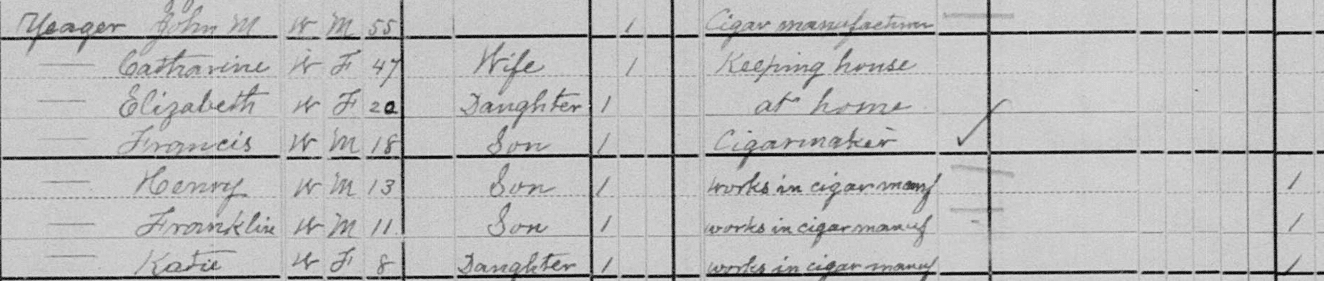 Yeager John M W M 55 1 Cigar manufacturer
— Catharine W F 47 Wife 1 Keeping house
— Elizabeth W F 20 Daughter 1 at home
— Francis W M 18 Son 1 Cigarmaker ✓
— Henry W M 13 Son 1 works in cigar manuf 1
— Franklin W M 11 Son 1 works in cigar manuf 1
— Katie W F 8 Daughter 1 works in cigar manuf 1